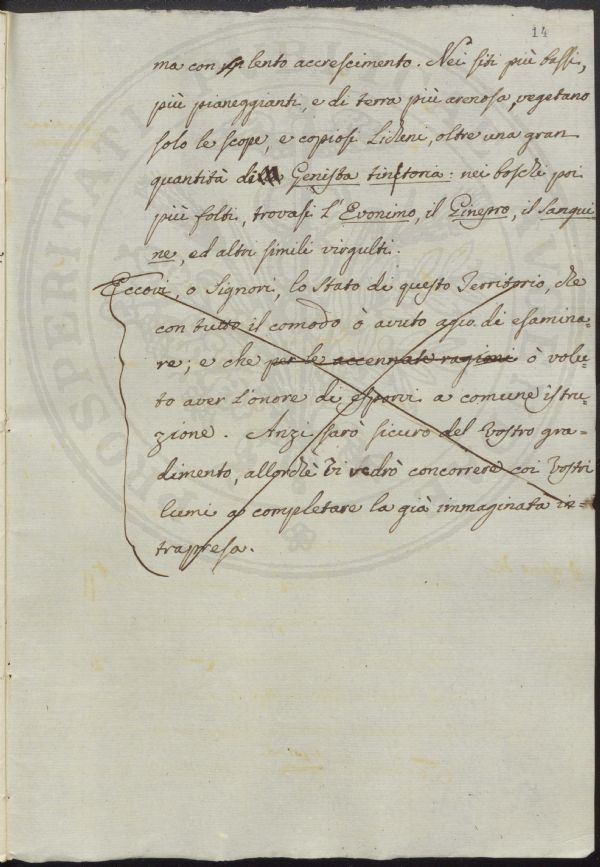 14
ma con lento accrescimento. Nei siti più bassi,
più pianeggianti, e di terra più arenosa, vegetano
solo le scope, e copiosi Licheni, oltre una gran
quantità di Genista tinctoria: nei boschi poi
più folti, trovasi l'Evonimo, il Ginepro, il Sangui
ne, ed altri simili virgulti.
Eccovi, o Signori, lo stato di questo Territorio, che
con tutto il comodo ò avuto agio di esamina=
re; e che per le accennate ragioni ò volu=
to aver l'onore di esporvi a comune istru=
zione. Anzi sarò sicuro del vostro gra=
dimento, allorchè Vi vedrò concorrere coi Vostri
lumi a completare la già immaginata in=
trapresa.
PROSPERITATI